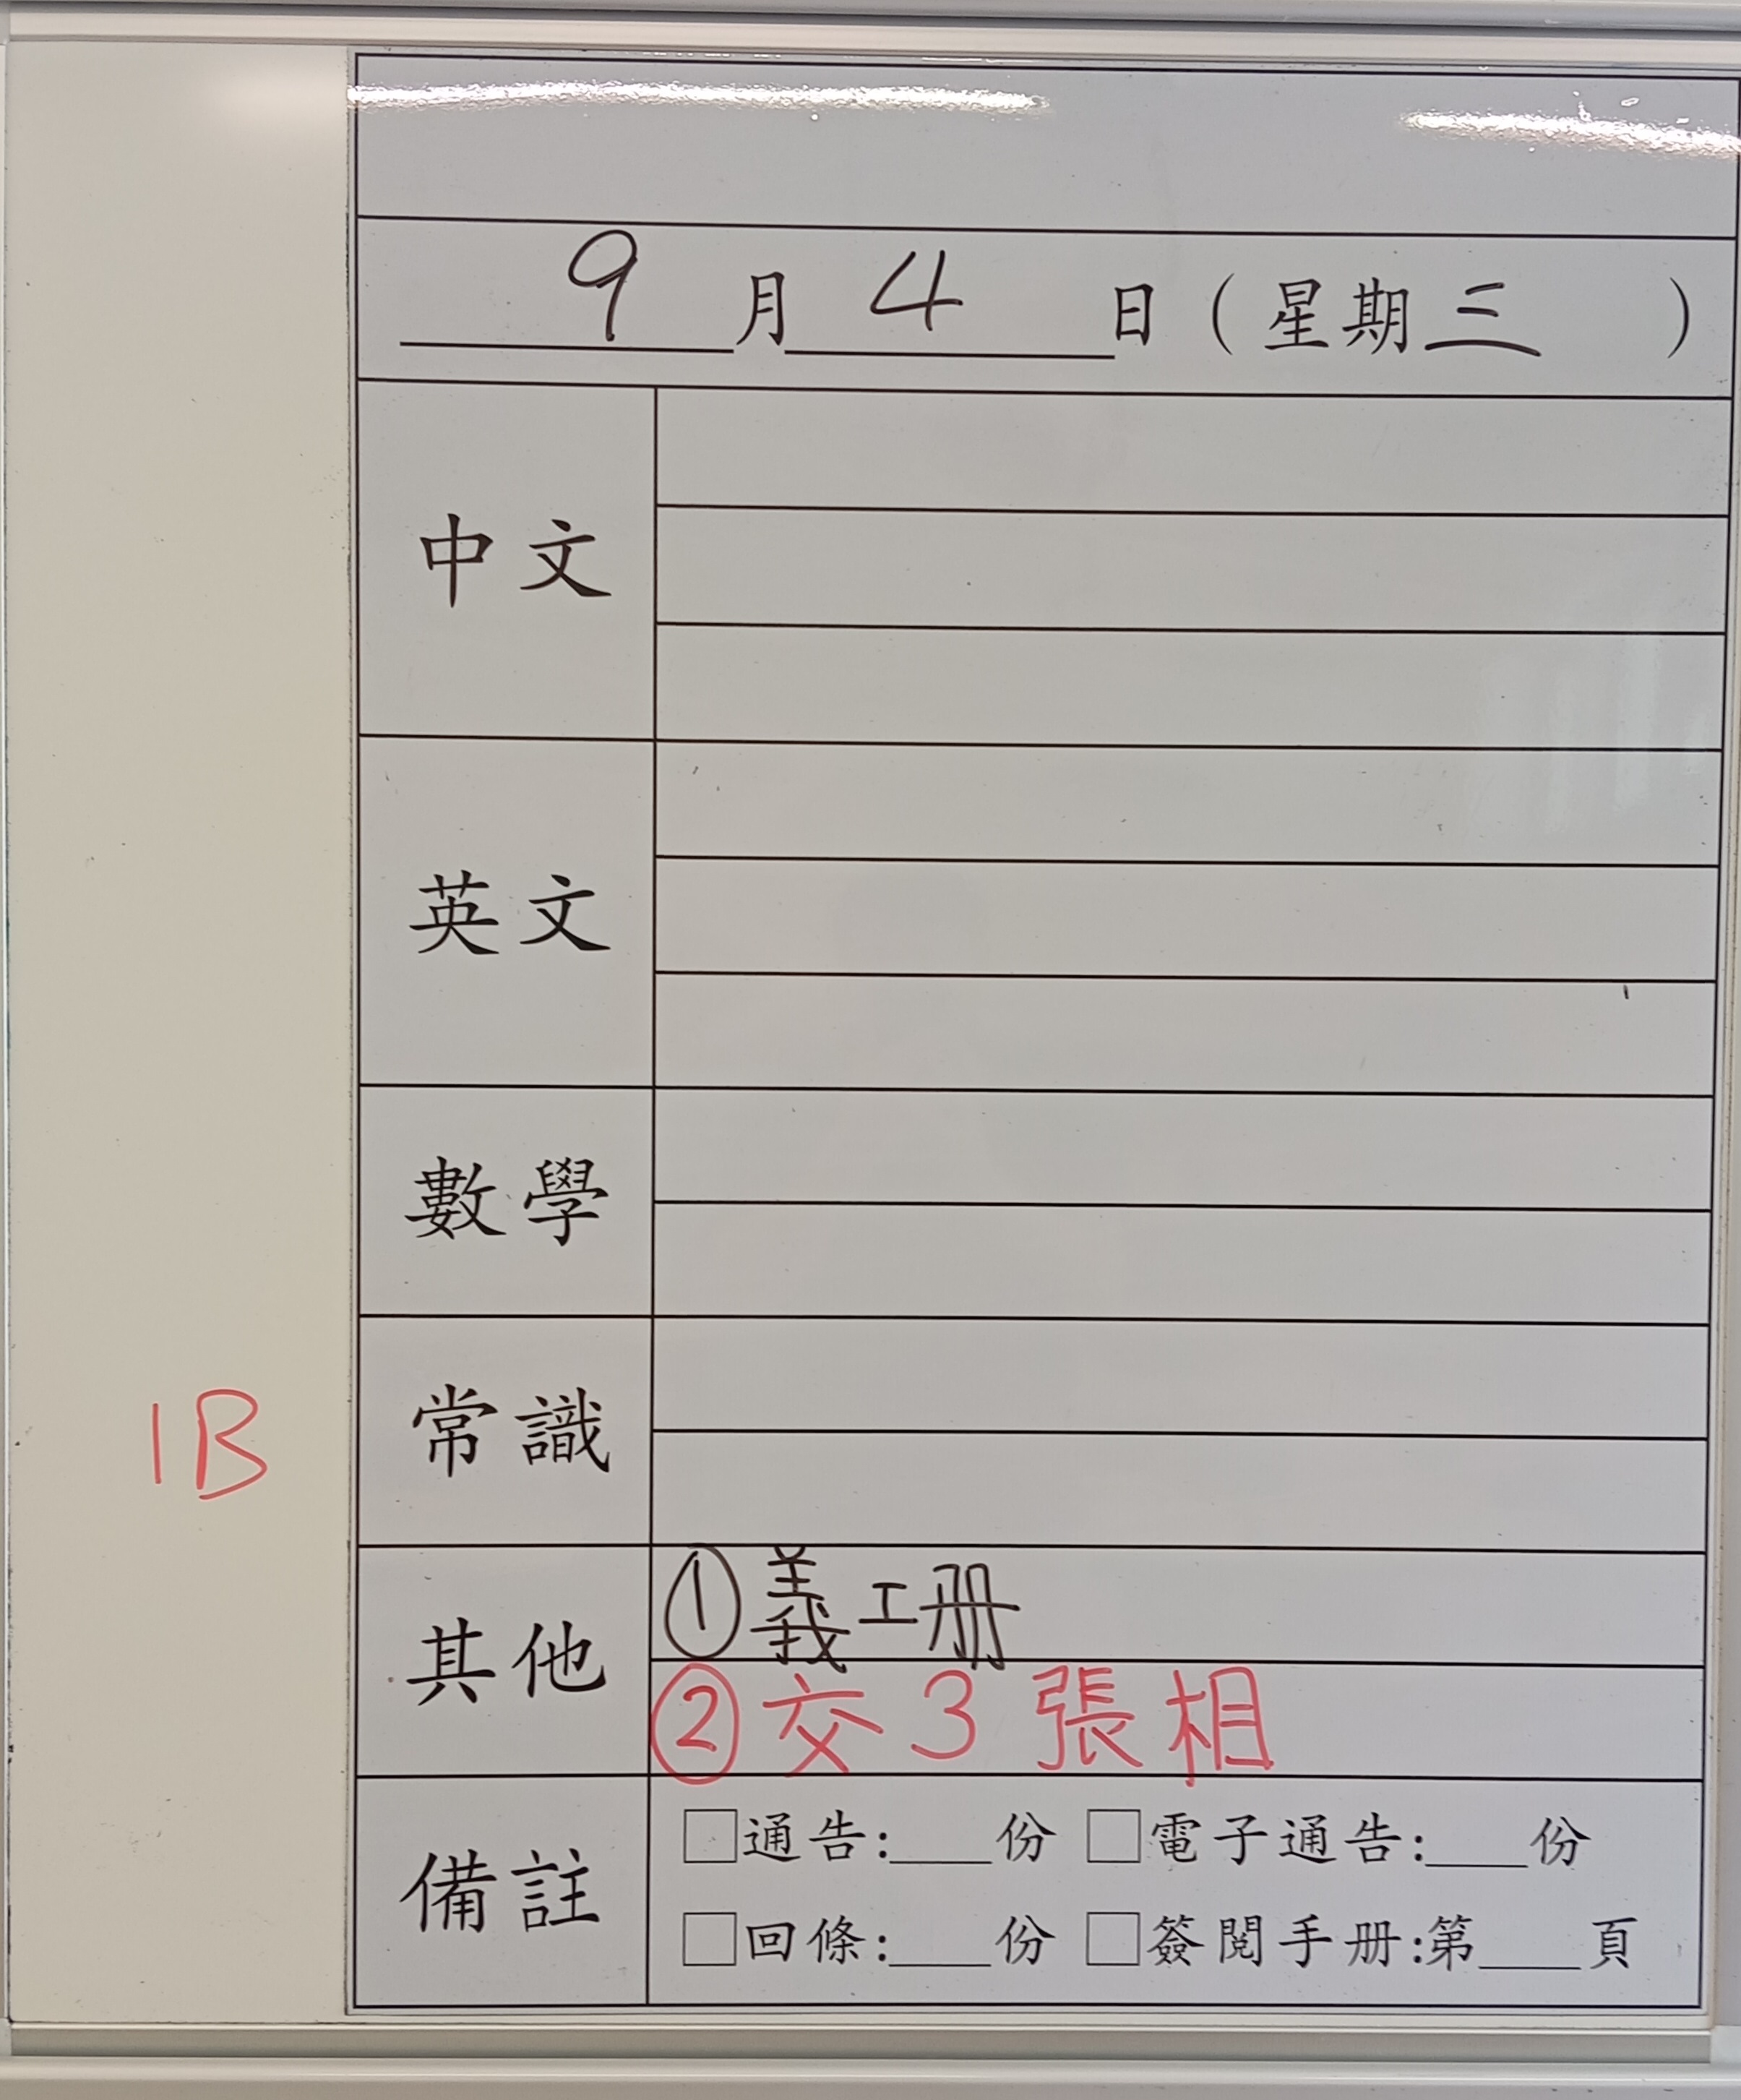 9月4日（星期三）
中文
英文
數學
1B
常識
其他
①義工册
②交3張相
備註
□通告:___份 □電子通告:___份
□回條:___份 □簽閱手册:第___頁